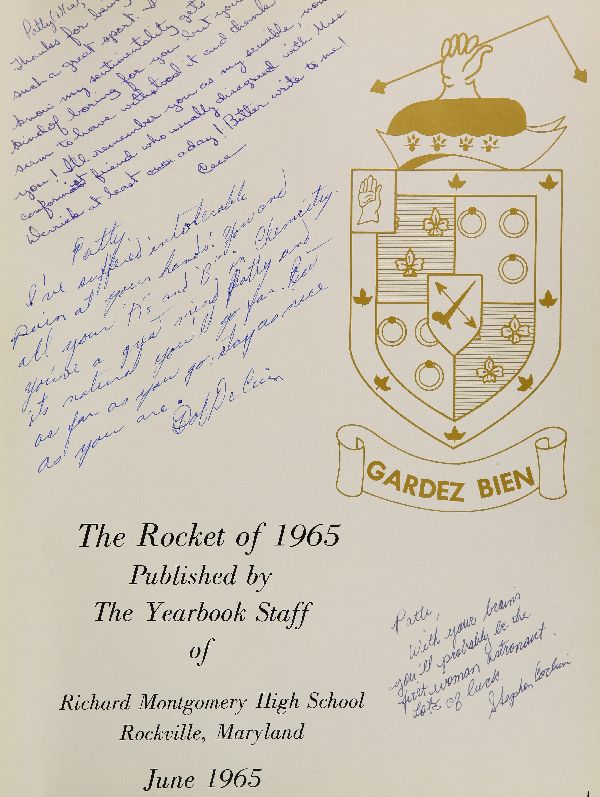 Patty (Miss),
Thanks for being
such a great sport. I
know my sentimentality gets
kind of boring for you but you
seem to have withstood it and thanks
you! I'll remember you as my sensible, non-
conformist friend who usually disagreed with Miss
Derrick at least once a day! Better write to me!
Cece
Patty,
I've suffered intolerable
pain at your hands! You and
all your π's and Chemistry.
you're a great mind Patty and
its natural you'll go far. Be
as far as you go, stay as nice
as you are.
Bob
GARDEZ BIEN
The Rocket of 1965
Published by
The Yearbook Staff
of
Richard Montgomery High School
Rockville, Maryland
June 1965
Patti,
With your brains
you'll probably be the
first woman astronaut.
Lots of luck
Stephen